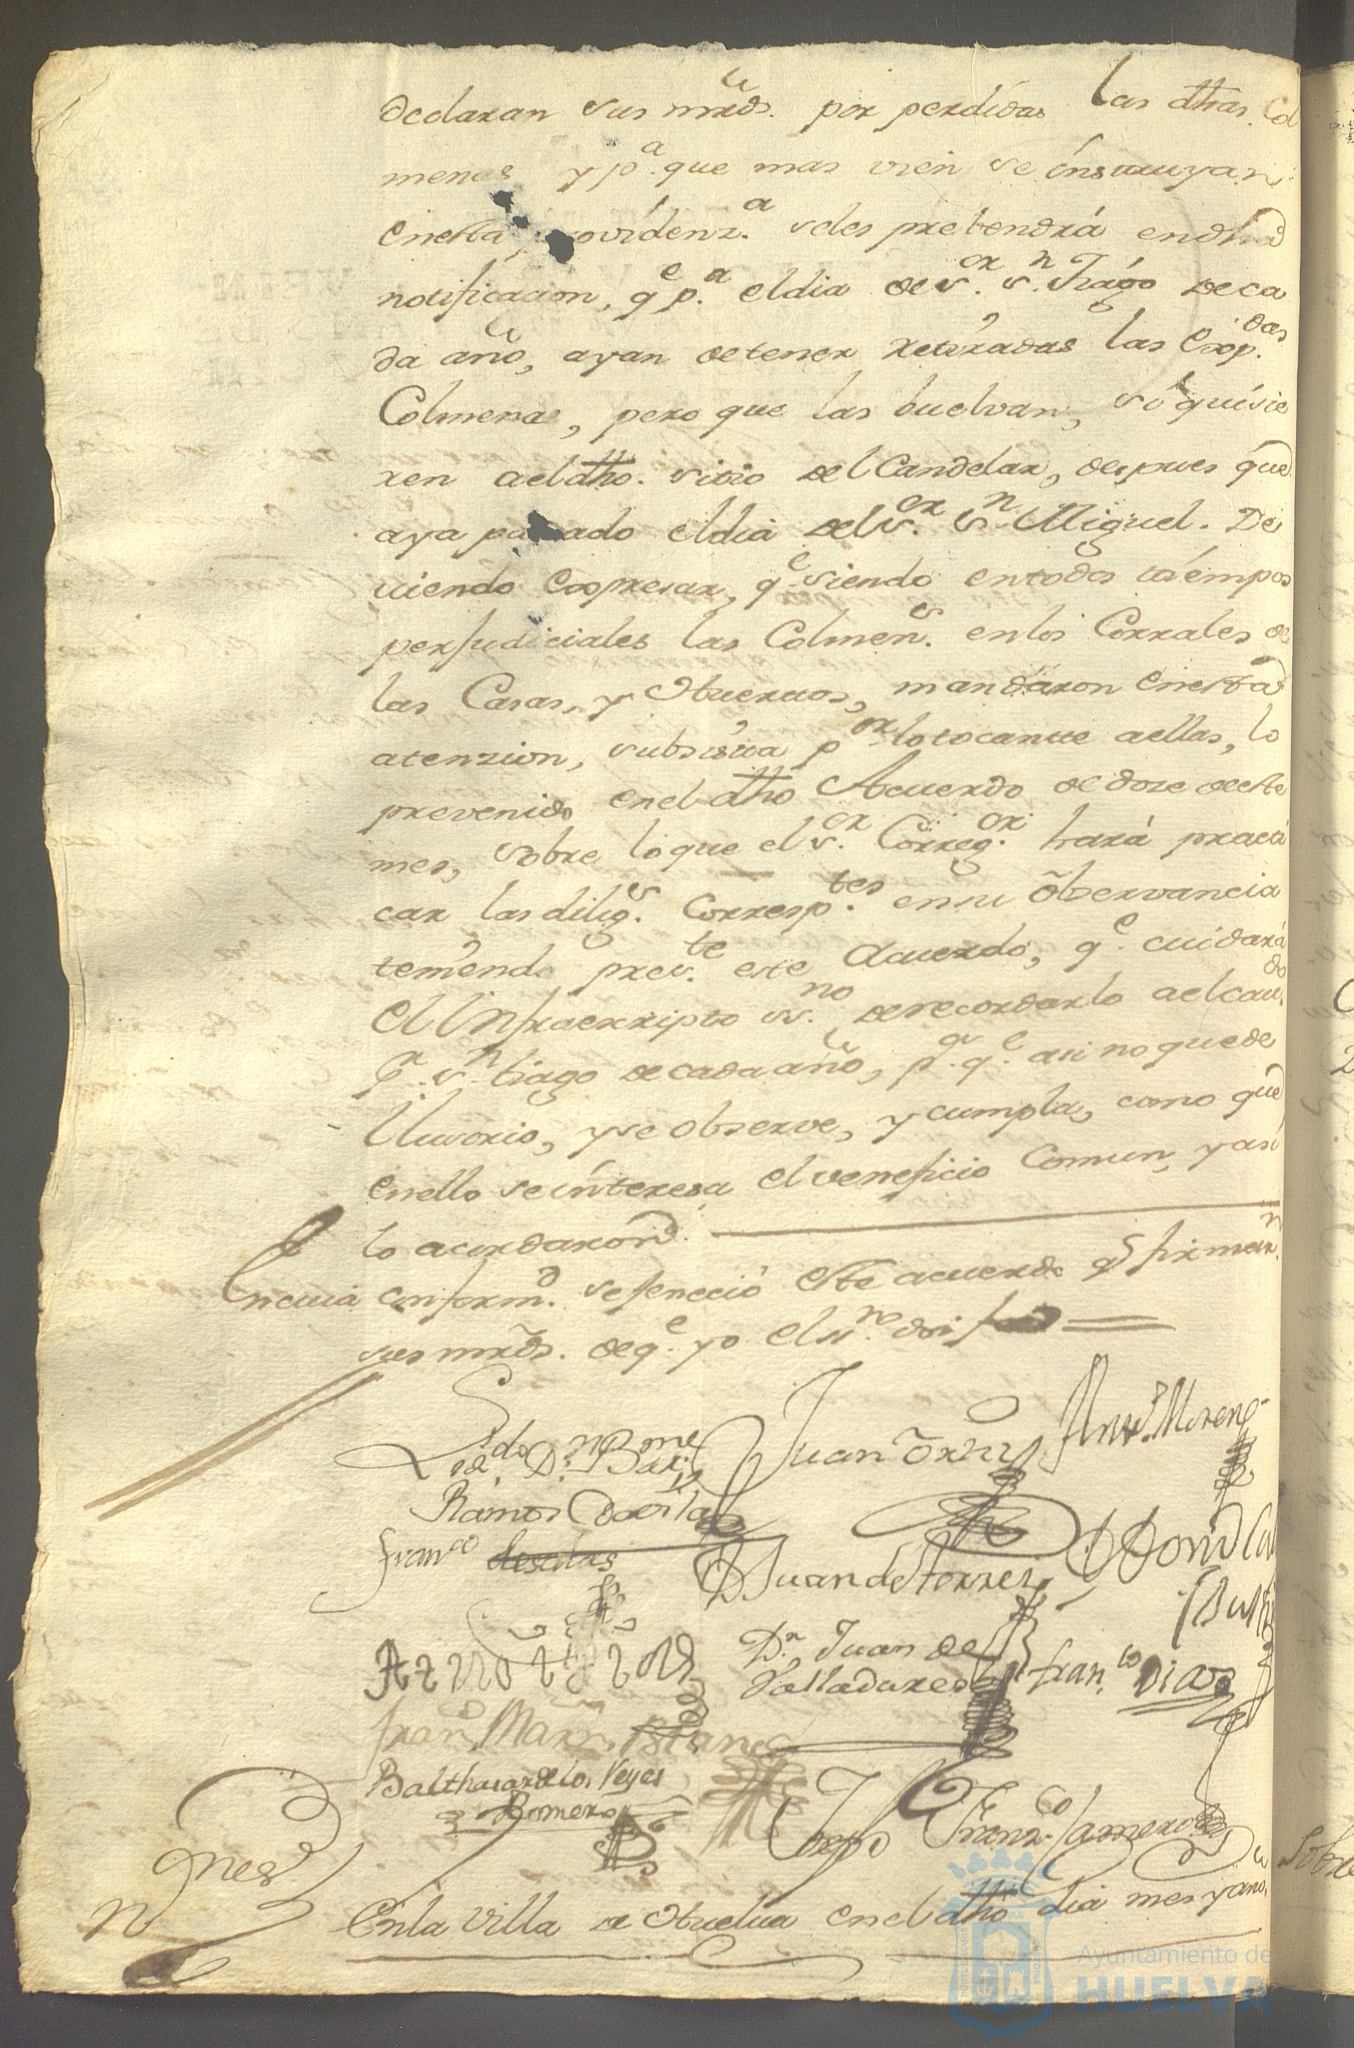 declaran sus mrds. por perdidas las dhas. Col
menas y pa. que mas vien se instruyan
en esta providenza. seles prebendrá en dha
notificacion, qe pa. el dia de sor. sn. Tiago de ca
da año, ayan de tener retiradas las Exxpdas.
Colmenas, pero que las buelvan, si quisie
ren a el dho. sitio del Candelar, despues que
aya pasado el dia del sor. Sn. Miguel. De
viendo Expresar, qe. siendo en todos tiempos
perjudiciales las Colmens. en los Corrales de
las Casas, y Huertos, mandaron en esta
atenzion, subsista por lo tocante a ellas, lo
prevenido en el dho Acuerdo de doze de este
mes, sobre lo que el sor. Corregor. hará practi
car las diligs. Correspttes. en su observancia
teniendo preste. este Acuerdo, qe. cuidará
el Infraescripto ssno. de recordarlo a el cavdo
pr. Sn. Tiago de cada año, pa. qe. asi no quede
Ilusorio, y se observe, y cumpla, como que
en ello se interesa el veneficio Comun, y asi
lo acordaron.
En cuia conformd. se feneció este acuerdo q firman.
sus mrds. de qe. yo el ssno. doi fee
Lizdo. Dn. Bme
Ramos Davila
Juan
Anto. Moreno
Franco
D Juan de Torres
Dn. Juan de
Valladares
Franco Dias
Fran Marn.
Balthasar de los Reyes
Romero
Franco. Jamero
En la Villa de Huelva en el dho dia mes y año.
Sobre
Ayuntamiento de
HUELVA